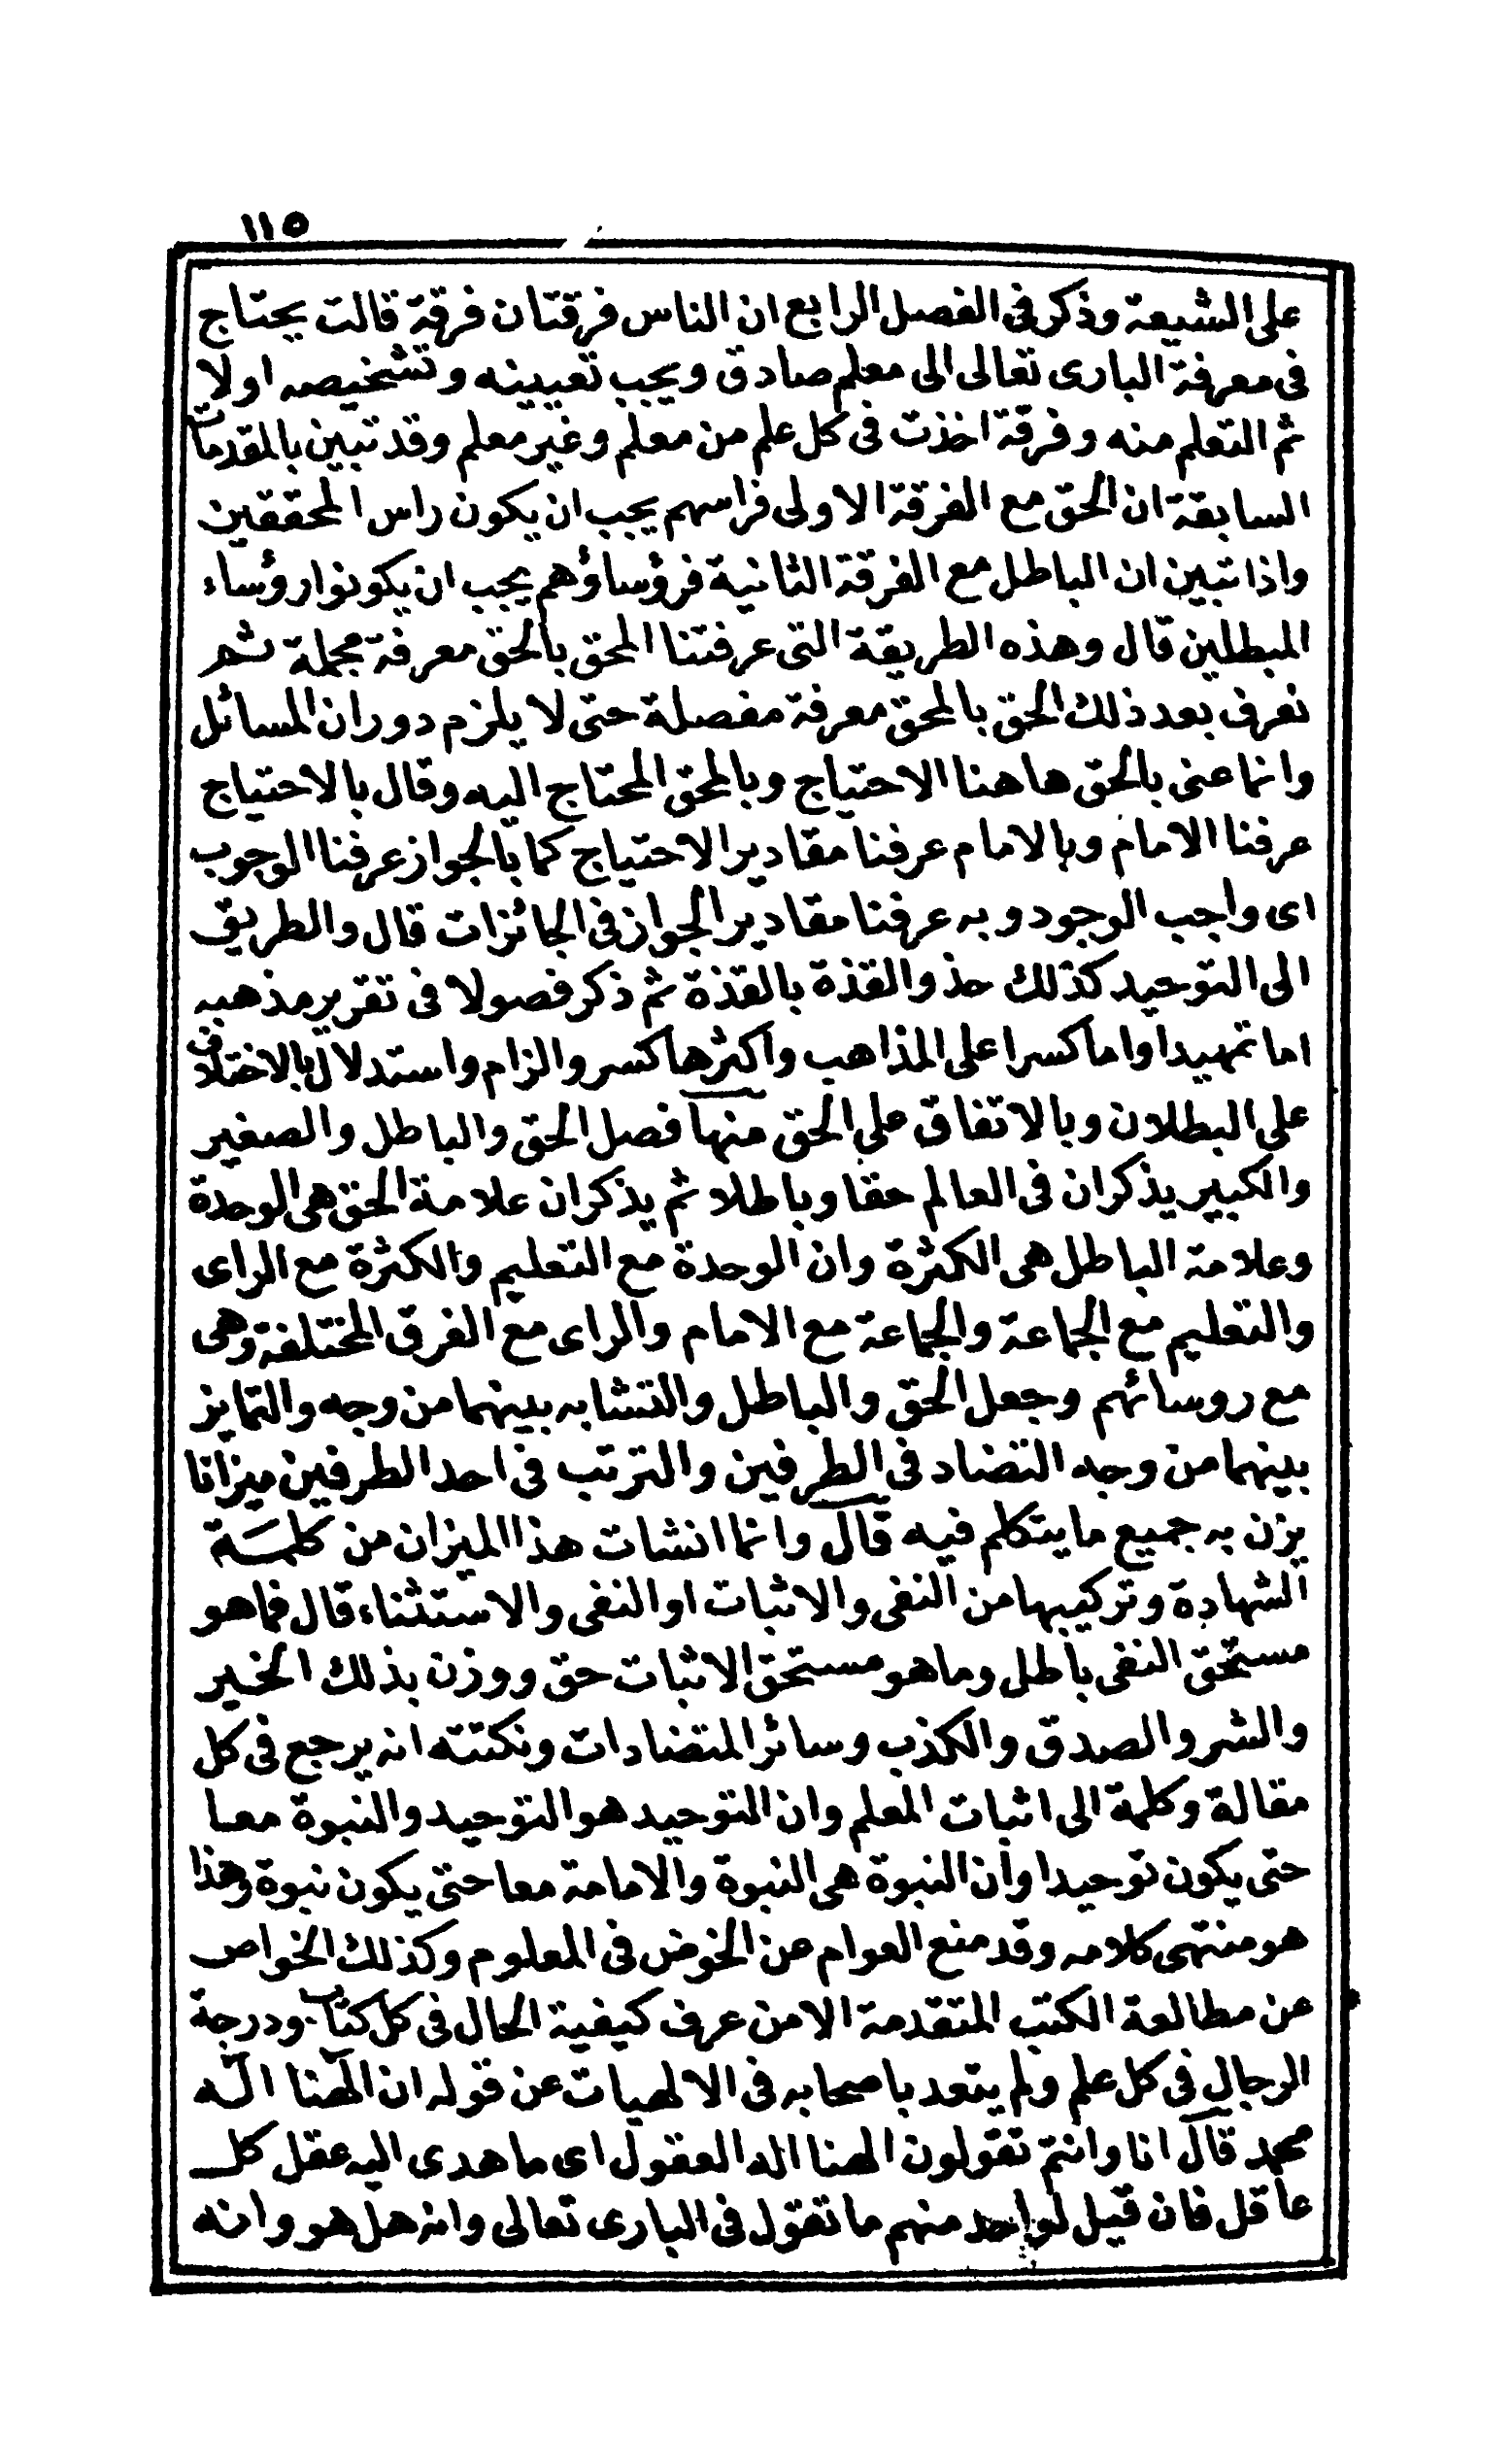 ١١٥
على الشيعة وذكر فى الفصل الرابع ان الناس فرقتان فرقة قالت يحتاج
فى معرفة البارى تعالى الى معلم صادق ويجب تعيينه وتشخيصه اولا
ثم التعلم منه وفرقة اخذت فى كل علم من معلم وغير معلم وقد تبين بالمقدمات
السابقة ان الحق مع الفرقة الاولى فراسهم يجب ان يكون راس المحققين
واذا تبين ان الباطل مع الفرقة الثانية فرؤساؤهم يجب ان يكونوا رؤساء
المبطلين قال وهذه الطريقة التى عرفتنا المحق بالحق معرفة مجملة ثم
نعرف بعد ذلك الحق بالمحق معرفة مفصلة حتى لا يلزم دوران المسائل
وانما عنى بالحق هاهنا الاحتياج وبالمحق المحتاج اليه وقال بالاحتياج
عرفنا الامام وبالامام عرفنا مقادير الاحتياج كما بالجواز عرفنا الوجوب
اى واجب الوجود وبه عرفنا مقادير الجواز فى الجائزات قال والطريق
الى التوحيد كذلك حذو القذة بالقذة ثم ذكر فصولا فى تقرير مذهبه
اما تمهيدا واما كسرا على المذاهب واكثرها كسر والزام واستدلال بالاختلاف
على البطلان وبالاتفاق على الحق منها فصل الحق والباطل والصغير
والكبير يذكر ان فى العالم حقا وباطلا ثم يذكر ان علامة الحق هى الوحدة
وعلامة الباطل هى الكثرة وان الوحدة مع التعليم والكثرة مع الراى
والتعليم مع الجماعة والجماعة مع الامام والراى مع الفرق المختلفة وهى
مع روسائهم وجعل الحق والباطل والتشابه بينهما من وجه والتمايز
بينهما من وجه التضاد فى الطرفين والترتب فى احد الطرفين ميزانا
يزن به جميع ما يتكلم فيه قال وانما انشات هذا الميزان من كلمة
الشهادة وتركيبها من النفى والاثبات او النفى والاستثناء قال فما هو
مستحق النفى باطل وما هو مستحق الاثبات حق ووزن بذلك الخير
والشر والصدق والكذب وسائر المتضادات ونكتته انه يرجع فى كل
مقالة وكلمة الى اثبات المعلم وان التوحيد هو التوحيد والنبوة معا
حتى يكون توحيدا وان النبوة هى النبوة والامامة معا حتى يكون نبوة وهذا
هو منتهى كلامه وقد منع العوام عن الخوض فى المعلوم وكذلك الخواص
عن مطالعة الكتب المتقدمة الا من عرف كيفية الحال فى كل كتاب ودرجة
الرجال فى كل علم ولم يتعد باصحابه فى الالهيات عن قوله ان الٓهنا الٓه
محمد قال انا وانتم تقولون الهنا اله العقول اى ما هدى اليه عقل كل
عاقل فان قيل لواحد منهم ما تقول فى البارى تعالى وانه هل هو وانه